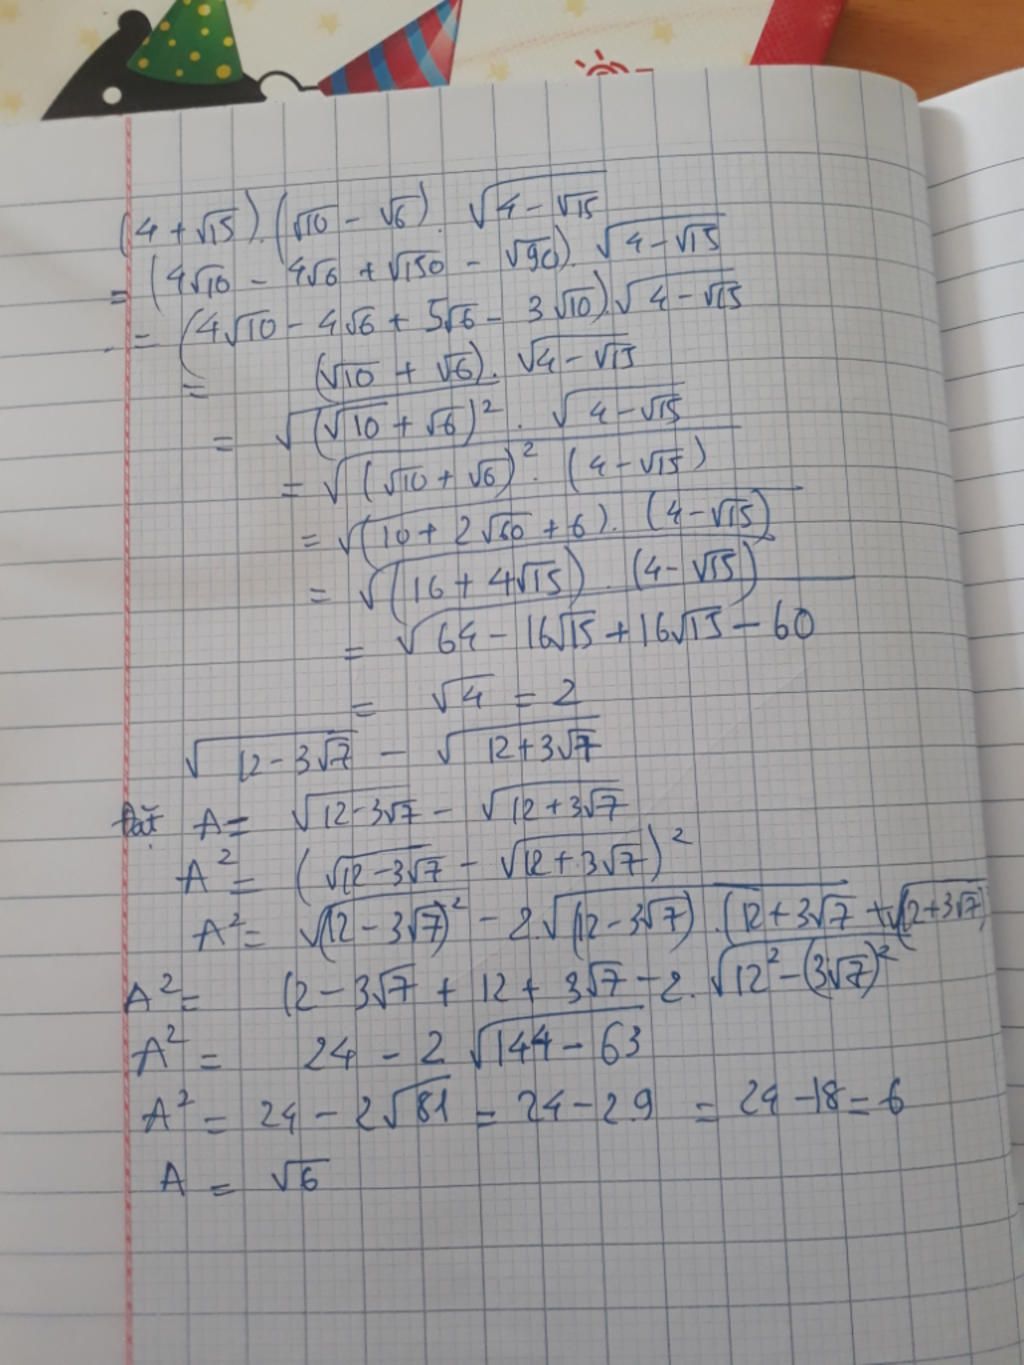 (4 + √15).(√10 − √6). √(4 − √15)
= (4√10 − 4√6 + √150 − √90). √(4 − √15)
= (4√10 − 4√6 + 5√6 − 3√10).√(4 − √15)
= (√10 + √6). √(4 − √15)
= √((√10 + √6)²) . √(4 − √15)
= √((√10 + √6)² . (4 − √15))
= √((10 + 2√60 + 6). (4 − √15))
= √((16 + 4√15) . (4 − √15))
= √(64 − 16√15 + 16√15 − 60)
= √4 = 2
√(12 − 3√7) − √(12 + 3√7)
Đặt A = √(12 − 3√7) − √(12 + 3√7)
A² = (√(12 − 3√7) − √(12 + 3√7))²
A² = √(12 − 3√7)² − 2.√(12 − 3√7) . (12 + 3√7 + √(12 + 3√7)
A² = 12 − 3√7 + 12 + 3√7 − 2. √(12² − (3√7)²)
A² = 24 − 2 √(144 − 63)
A² = 24 − 2√81 = 24 − 2.9 = 24 − 18 = 6
A = √6